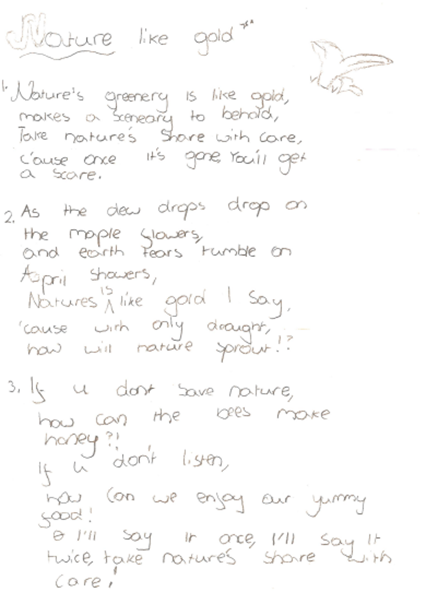 Nature like gold
1. Nature's greenery is like gold,
makes a sceneary to behold,
Take nature's share with care,
c'ause once it's gone, You'll get
a scare.
2. As the dew drops drop on
the maple flowers,
and earth tears tumble on
April showers,
Natures is like gold I say,
'cause with only drought,
how will nature sprout!?
3. If u dont save nature,
how can the bees make
honey?!
If u don't listen,
how can we enjoy our yummy
food!
I'll say it once, I'll say it
twice, take nature's share with
care!